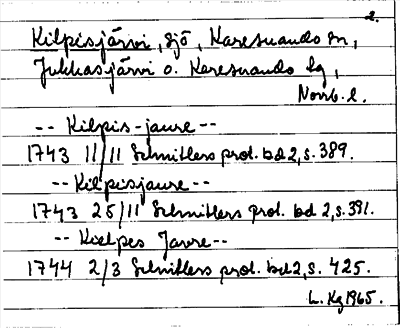 2.
Kilpisjärvi, sjö, Karesuando sn,
Jukkasjärvi o. Karesuando lg,
Norrb. l.
-- Kilpis-jaure --
1743 11/11 Schnitlers prot. bd 2, s. 389.
-- Kilpisjaure --
1743 25/11 Schnitlers prot. bd 2, s. 391.
-- Kielpes Javre --
1744 2/3 Schnitlers prot. bd 2, s. 425.
L. Hg 1965.